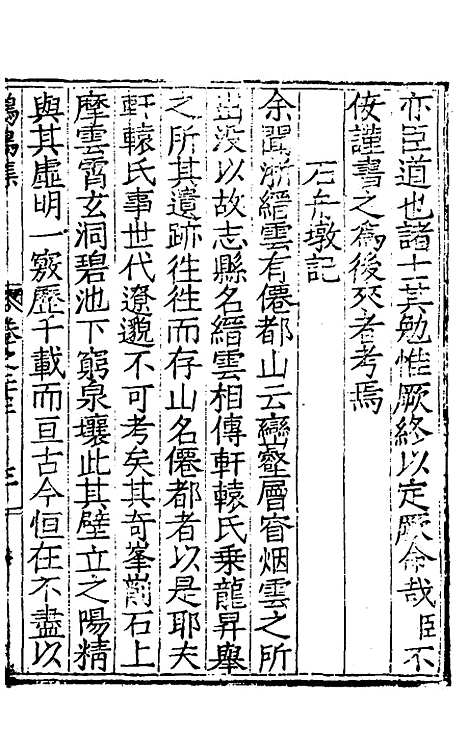 亦臣道也諸士其勉惟厥終以定厥命哉臣不
佞謹書之為後來者考焉
石舟墩記
余聞浙縉雲有僊都山云巒壑層窅烟雲之所
出没以故志縣名縉雲相傳軒轅氏乗龍昇舉
之所其遺跡徃徃而存山名僊都者以是耶夫
軒轅氏事世代遼邈不可考矣其奇峯削石上
摩雲霄玄洞碧池下窮泉壤此其壁立之陽精
與其虛明一竅歷千載而亘古今恒在不盡以
集
卷之